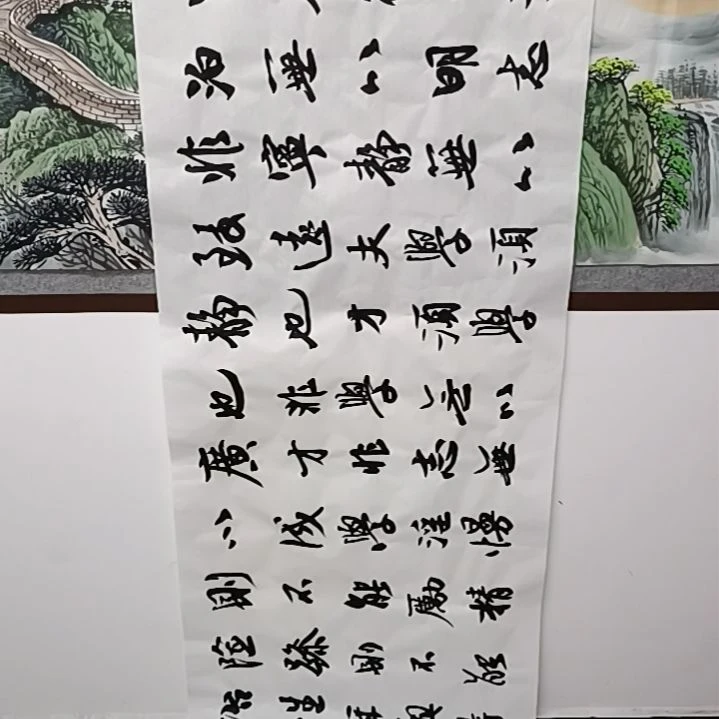 泊無以明志
非寧靜無以
致遠夫學須
靜也才須學
也非學無以
廣才非志無
以成學淫慢
則不能勵精
險躁則不能